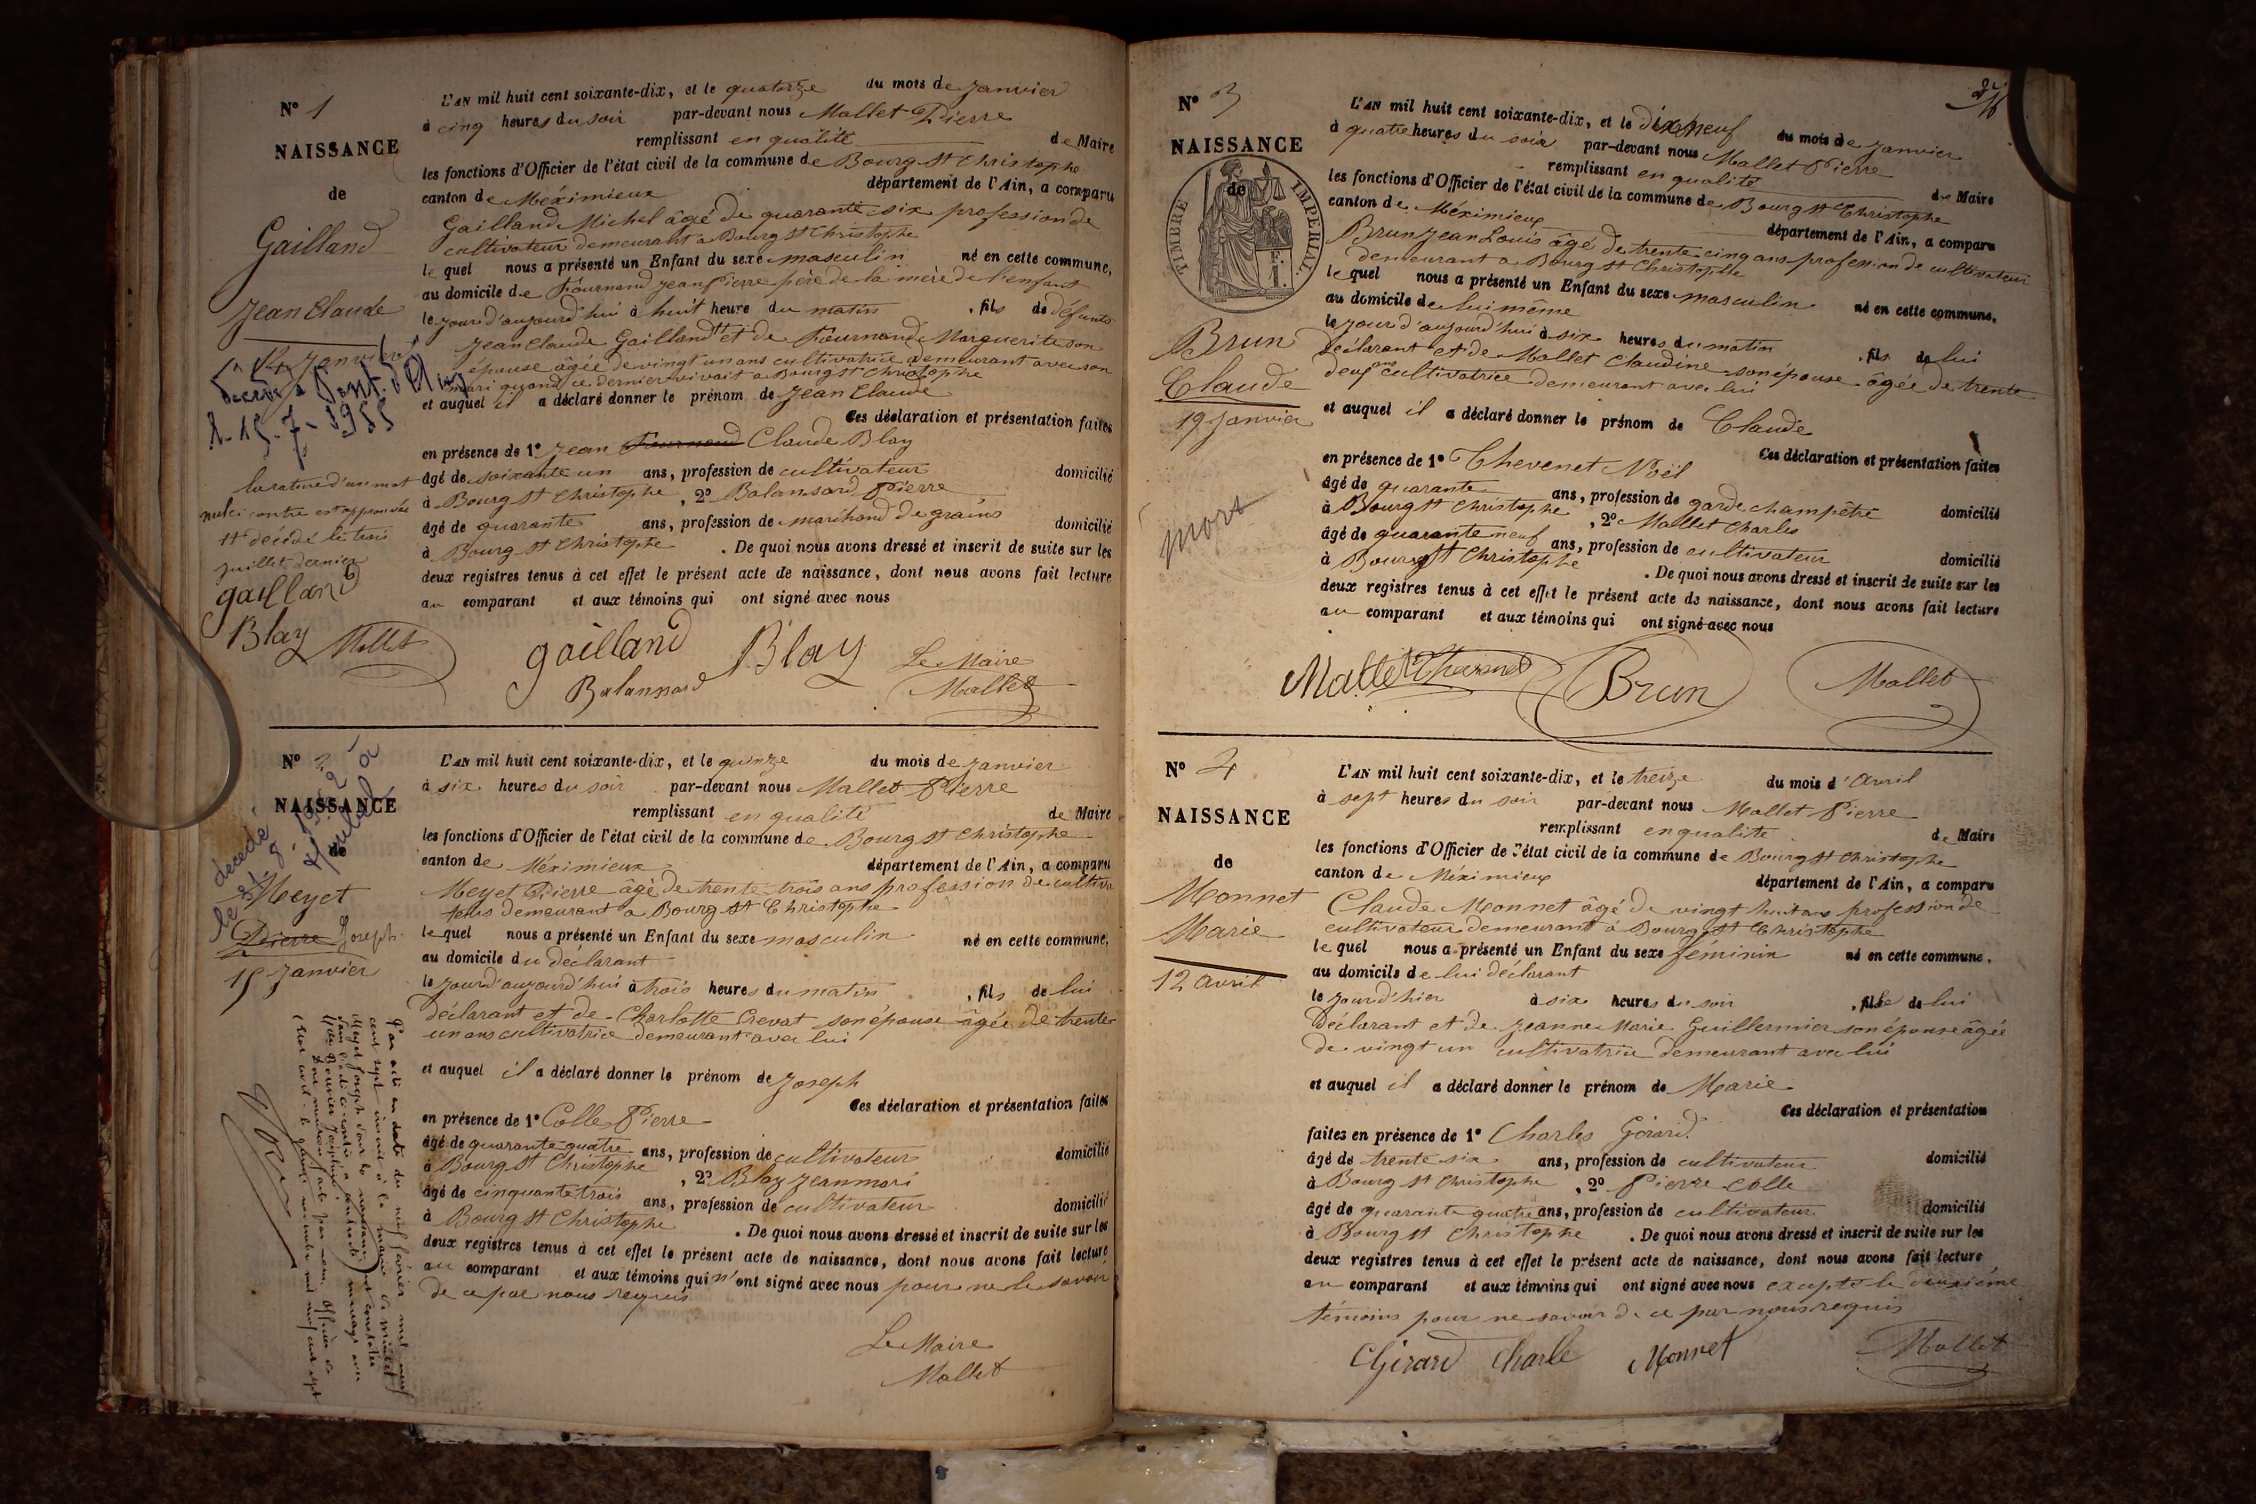 N° 1
NAISSANCE
de
Gailland
Jean Claude
14 Janvier
décédé à Pont d'Ain
15-7-1955
la rature d'un mot
nul ci contre est approuvée
décédé le trois
juillet dernier
gailland
Blay Mallet
L'AN mil huit cent soixante-dix, et le quatorze du mois de Janvier
à cinq heures du soir par-devant nous Mallet Pierre
remplissant en qualité de Maire
les fonctions d'Officier de l'état civil de la commune de Bourg St Christophe
canton de Méximieux département de l'Ain, a comparu
Gailland Michel âgé de quarante six profession de
cultivateur demeurant à Bourg St Christophe
le quel nous a présenté un Enfant du sexe masculin né en cette commune,
au domicile de Fournand Jean Pierre père de la mère de l'enfant
le jour d'aujourd'hui à huit heure du matin, fils de défunt
Jean Claude Gailland et de Fournand Marguerite son
épouse âgée de vingt un ans cultivatrice demeurant avec son
mari quand ce dernier vivait a Bourg St Christophe
et auquel il a déclaré donner le prénom de Jean Claude
Ces déclaration et présentation faites
en présence de 1° Jean Fournand Claude Blay
âgé de soixante un ans, profession de cultivateur domicilié
à Bourg St Christophe, 2° Balansard Pierre
âgé de quarante ans, profession de marchand de grains domicilié
à Bourg St Christophe. De quoi nous avons dressé et inscrit de suite sur les
deux registres tenus à cet effet le présent acte de naissance, dont nous avons fait lecture
au comparant et aux témoins qui ont signé avec nous
gailland Blay Le Maire
Balansard Mallet
N° 2
NAISSANCE
de
décédé
le 31
Meyet
Pierre Joseph
15 Janvier
L'AN mil huit cent soixante-dix, et le quinze du mois de Janvier
à six heures du soir par-devant nous Mallet Pierre
remplissant en qualité de Maire
les fonctions d'Officier de l'état civil de la commune de Bourg St Christophe
canton de Méximieux département de l'Ain, a comparu
Meyet Pierre âgé de trente trois ans profession de cultiva
teur demeurant a Bourg St Christophe
le quel nous a présenté un Enfant du sexe masculin né en cette commune,
au domicile du déclarant
le jour d'aujourd'hui à trois heures du matin, fils de lui
déclarant et de Charlotte Crevat son épouse âgée de trente
un ans cultivatrice demeurant avec lui
et auquel il a déclaré donner le prénom de Joseph
Ces déclaration et présentation faites
en présence de 1° Colle Pierre
âgé de quarante quatre ans, profession de cultivateur domicilié
à Bourg St Christophe, 2° Blay Jeanmari
âgé de cinquante trois ans, profession de cultivateur domicilié
à Bourg St Christophe. De quoi nous avons dressé et inscrit de suite sur les
deux registres tenus à cet effet le présent acte de naissance, dont nous avons fait lecture
au comparant et aux témoins qui n'ont signé avec nous pour ne le savoir
de ce par nous requis
Le Maire
Mallet
N° 3
NAISSANCE
de
TIMBRE IMPERIAL
Brun
Claude
19 Janvier
mort
L'AN mil huit cent soixante-dix, et le dix neuf du mois de Janvier
à quatre heures du soir par-devant nous Mallet Pierre
remplissant en qualité de Maire
les fonctions d'Officier de l'état civil de la commune de Bourg St Christophe
canton de Méximieux département de l'Ain, a comparu
Brun Jean Louis âgé de trente cinq ans profession de cultivateur
demeurant a Bourg St Christophe
le quel nous a présenté un Enfant du sexe masculin né en cette commune,
au domicile de lui même
le jour d'aujourd'hui à six heures du matin, fils de lui
déclarant et de Mallet Claudine son épouse âgée de trente
deux ans cultivatrice demeurant avec lui
et auquel il a déclaré donner le prénom de Claude
Ces déclaration et présentation faites
en présence de 1° Thevenet Noël
âgé de quarante ans, profession de garde champêtre domicilié
à Bourg St Christophe, 2° Mallet Charles
âgé de quarante neuf ans, profession de cultivateur domicilié
à Bourg St Christophe. De quoi nous avons dressé et inscrit de suite sur les
deux registres tenus à cet effet le présent acte de naissance, dont nous avons fait lecture
au comparant et aux témoins qui ont signé avec nous
Mallet Thevenet Brun Mallet
N° 4
NAISSANCE
de
Monnet
Marie
12 avril
L'AN mil huit cent soixante-dix, et le treize du mois d'avril
à sept heures du soir par-devant nous Mallet Pierre
remplissant en qualité de Maire
les fonctions d'Officier de l'état civil de la commune de Bourg St Christophe
canton de Méximieux département de l'Ain, a comparu
Claude Monnet âgé de vingt huit ans profession de
cultivateur demeurant à Bourg St Christophe
le quel nous a présenté un Enfant du sexe féminin né en cette commune,
au domicile de lui déclarant
le jour d'hier à six heures du soir, fille de lui
déclarant et de Jeanne Marie Guillermier son épouse âgée
de vingt un cultivatrice demeurant avec lui
et auquel il a déclaré donner le prénom de Marie
Ces déclaration et présentation
faites en présence de 1° Charles Girard
âgé de trente six ans, profession de cultivateur domicilié
à Bourg St Christophe, 2° Pierre Colle
âgé de quarante quatre ans, profession de cultivateur domicilié
à Bourg St Christophe. De quoi nous avons dressé et inscrit de suite sur les
deux registres tenus à cet effet le présent acte de naissance, dont nous avons fait lecture
au comparant et aux témoins qui ont signé avec nous excepté le deuxième
témoins pour ne savoir de ce par nous requis
Girard Charle Monnet Mallet